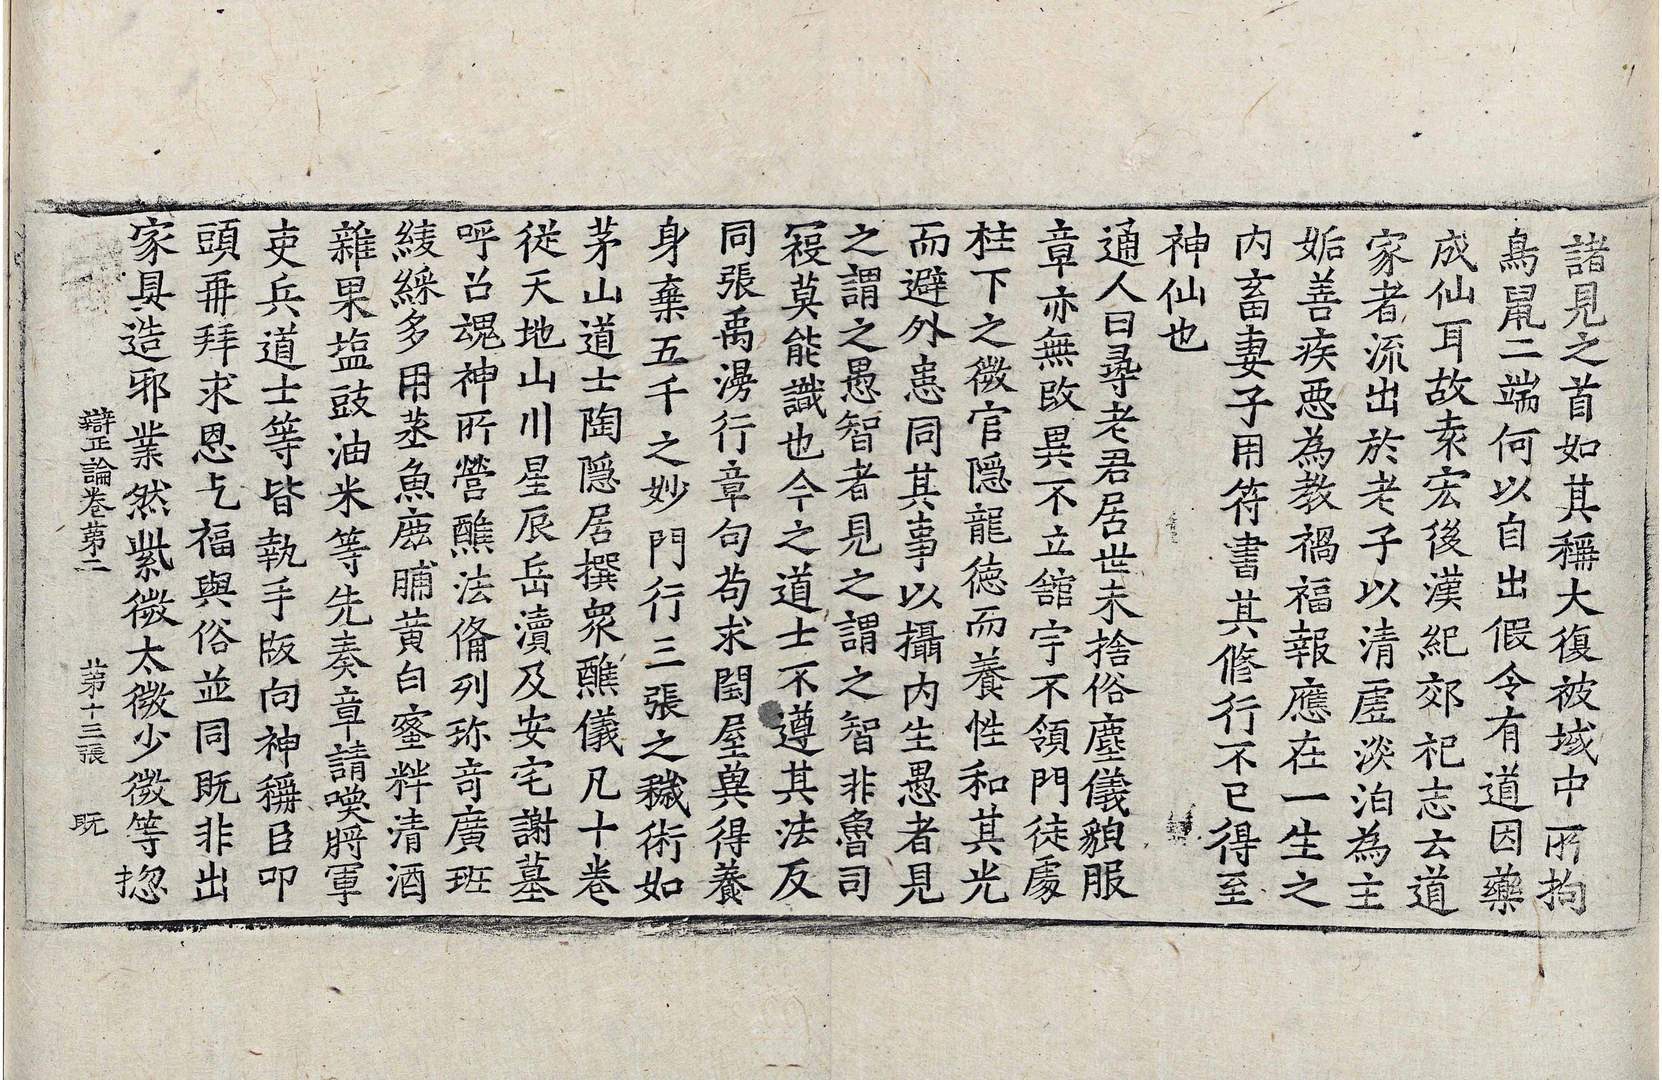 諸見之首如其稱大復被域中所拘
鳥鼠二端何以自出假令有道因藥
成仙耳故袁宏後漢紀郊祀志云道
家者流出於老子以清虛淡泊為主
姤善疾惡為教禍福報應在一生之
内畜妻子用符書其修行不已得至
神仙也
通人曰尋老君居世未捨俗塵儀貌服
章亦無改異不立舘宇不領門徒處
柱下之微官隱龍德而養性和其光
而避外患同其事以攝内生愚者見
之謂之愚智者見之謂之智非魯司
寇莫能識也今之道士不遵其法反
同張禹漫行章句苟求閏屋冀得養
身棄五千之妙門行三張之穢術如
茅山道士陶隱居撰衆醮儀凡十卷
從天地山川星辰岳瀆及安宅謝墓
呼召魂神所營醮法俻列珎奇廣班
綾綵多用蒸魚鹿脯黃白蜜粰清酒
雜果塩豉油米等先奏章請喚將軍
吏兵道士等皆執手版向神稱臣叩
頭再拜求恩乞福與俗並同既非出
家具造邪業然紫微太微少微等揔
辯正論卷苐二 苐十三張 既